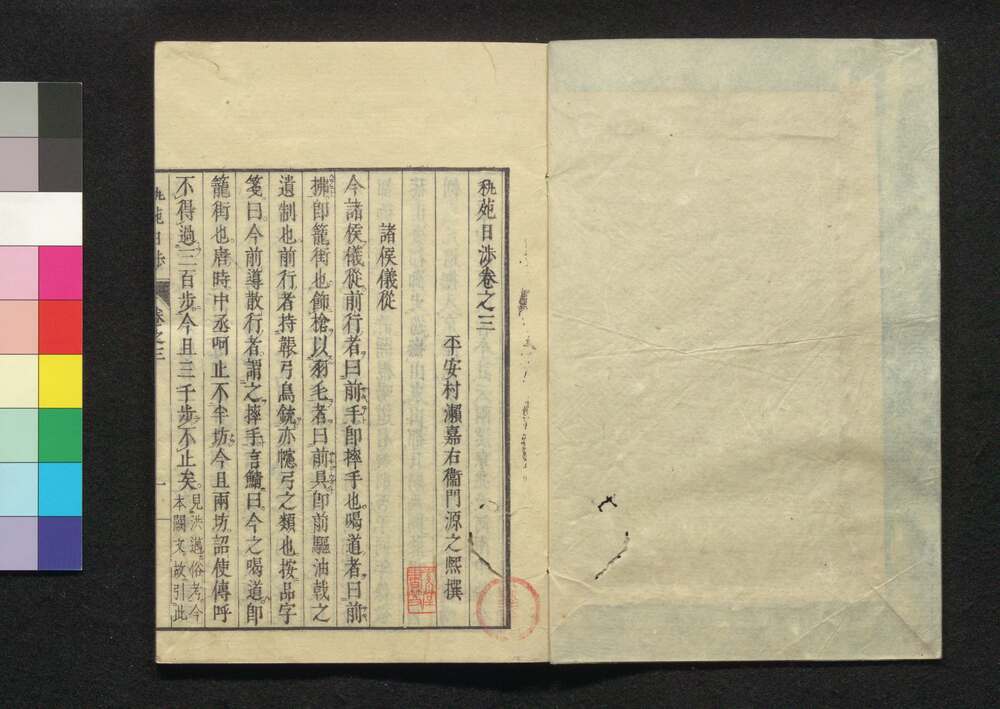 秇苑日渉卷之三
平安村瀬嘉右衞門源之熈撰
諸侯儀從
今諸侯儀從前行者曰前手卽摔手也喝道者曰前
拂卽籠街也飾槍以羽毛者曰前具卽前驅油戟之
遺制也前行者持韔弓鳥銃亦幰弓之類也按品字
箋曰今前導散行者謂之摔手言鯖曰今之喝道卽
籠街也唐時中丞呵止不半坊今且兩坊詔使傳呼
不得過三百步今且三千步不止矣見洪邁俗考今
本闕文故引此
秇苑日渉
卷之三
一